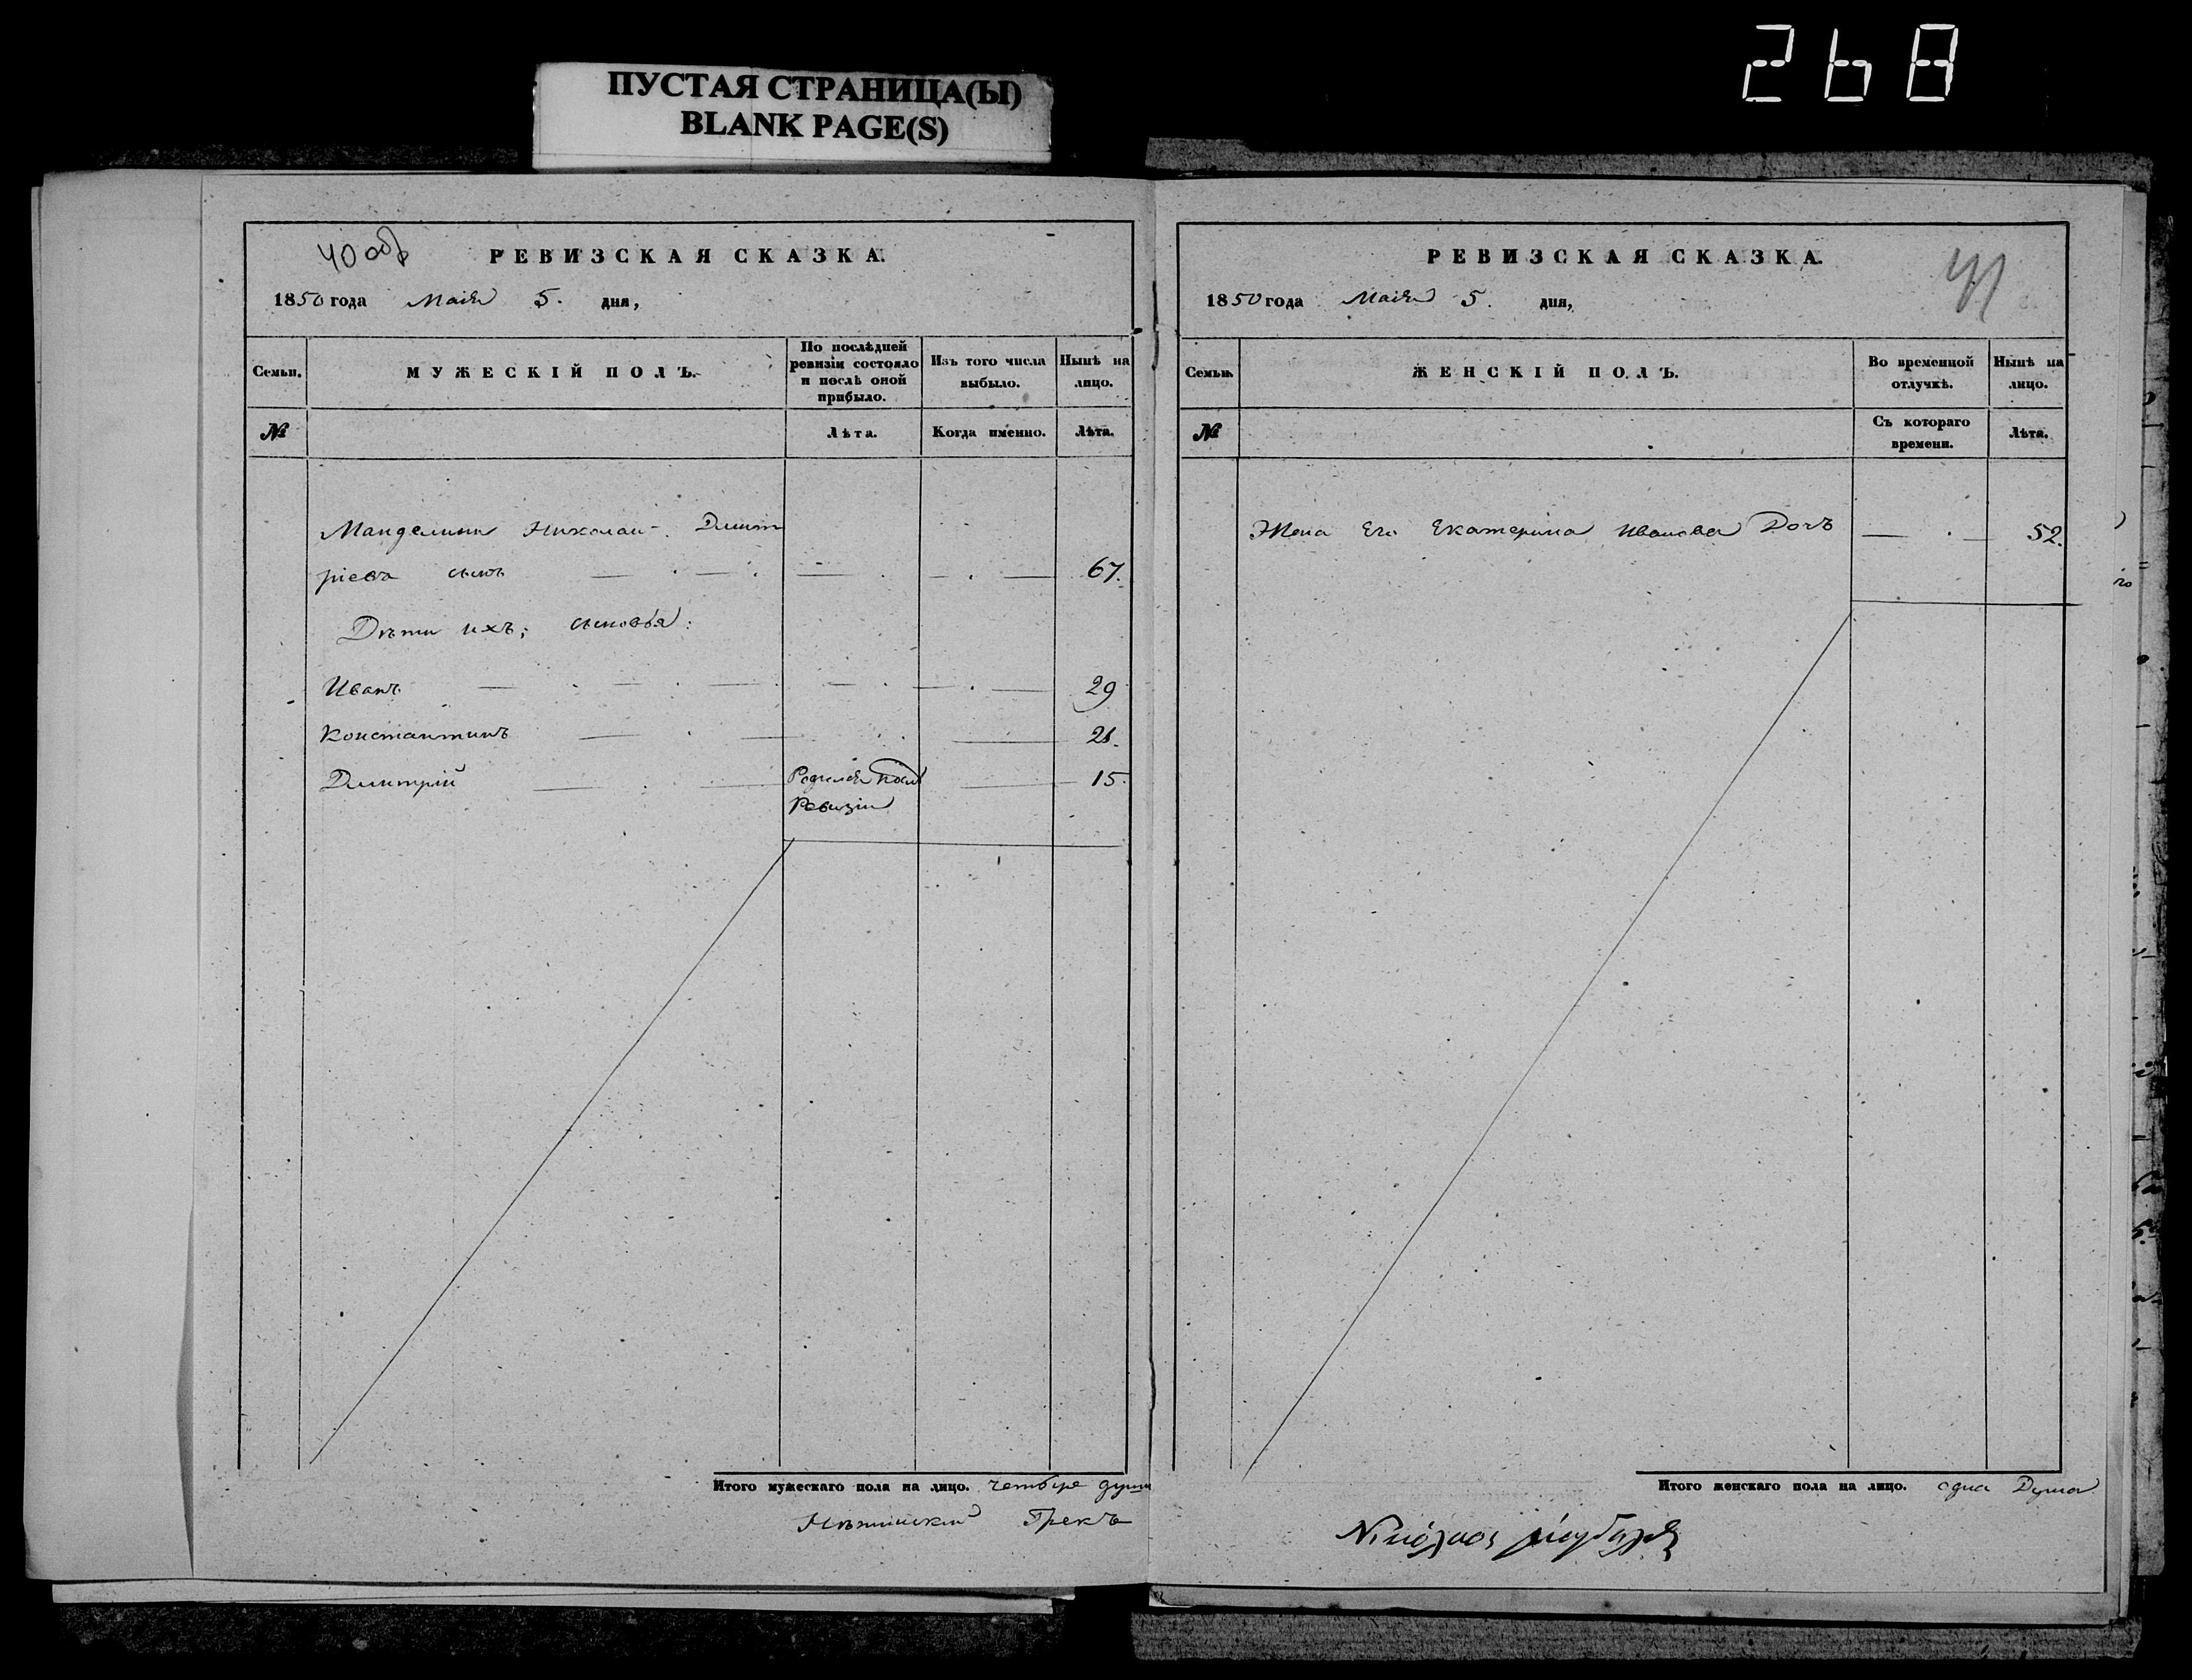 268
ПУСТАЯ СТРАНИЦА(Ы)
BLANK PAGE(S)
40 об
РЕВИЗСКАЯ СКАЗКА.
1850 года Маія 5. дня,
Семьи.
МУЖЕСКІЙ ПОЛЪ.
По послѣдней ревизіи состояло и послѣ оной прибыло.
Изъ того числа выбыло.
Нынѣ на лицо.
№
Лѣта.
Когда именно.
Лѣта.
Манделини Николай Дмит
ріевъ сынъ 67.
Дѣти ихъ; сыновья:
Иванъ 29
Константинъ 21.
Дмитрій Родился посл 15.
Ревизіи
Итого мужескаго пола на лицо. четыре души
Нѣжинскій Грекъ
41
РЕВИЗСКАЯ СКАЗКА.
1850 года Маія 5. дня,
Семьи.
ЖЕНСКІЙ ПОЛЪ.
Во временной отлучкѣ.
Нынѣ на лицо.
№
Съ котораго времени.
Лѣта.
Жена Его Екатерина Иванова Дочь 52.
Итого женскаго пола на лицо. одна Душа
Νικόλαος